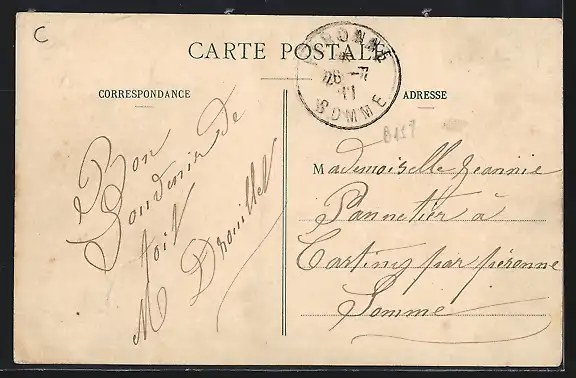 C
CARTE POSTALE
PERONNE
26 -7
11
SOMME
CORRESPONDANCE
ADRESSE
Bon
Souvenir de
toit
M Drouillet
Mademoiselle Jeannie
Pannetier à
Cartiny par péronne
Somme